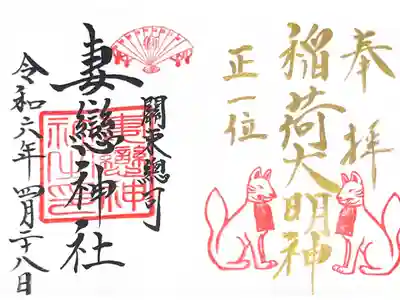 奉拝
稲荷大明神
正一位
關東總司
妻戀神社
令和六年 四月二十八日
妻戀神社之印